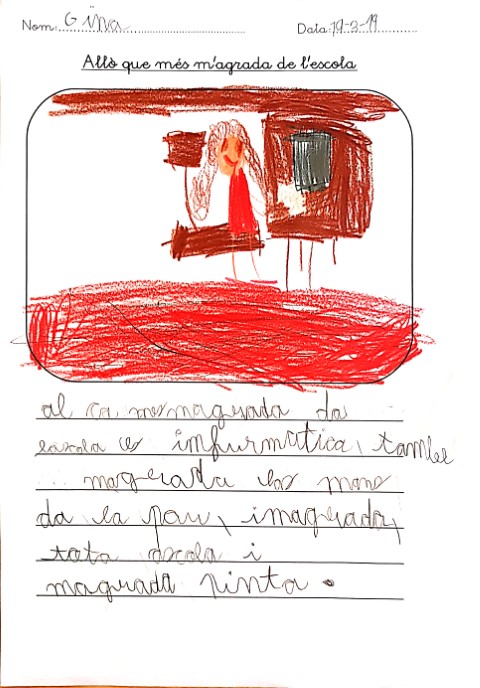 Nom: Gina Data: 19-3-19
Allò que més m'agrada de l'escola
al ca mes magrada da
lascola es imfurmatica, tambe
magrada las mans
da la pau, imagrada,
tota ascola i
magrada pinta.